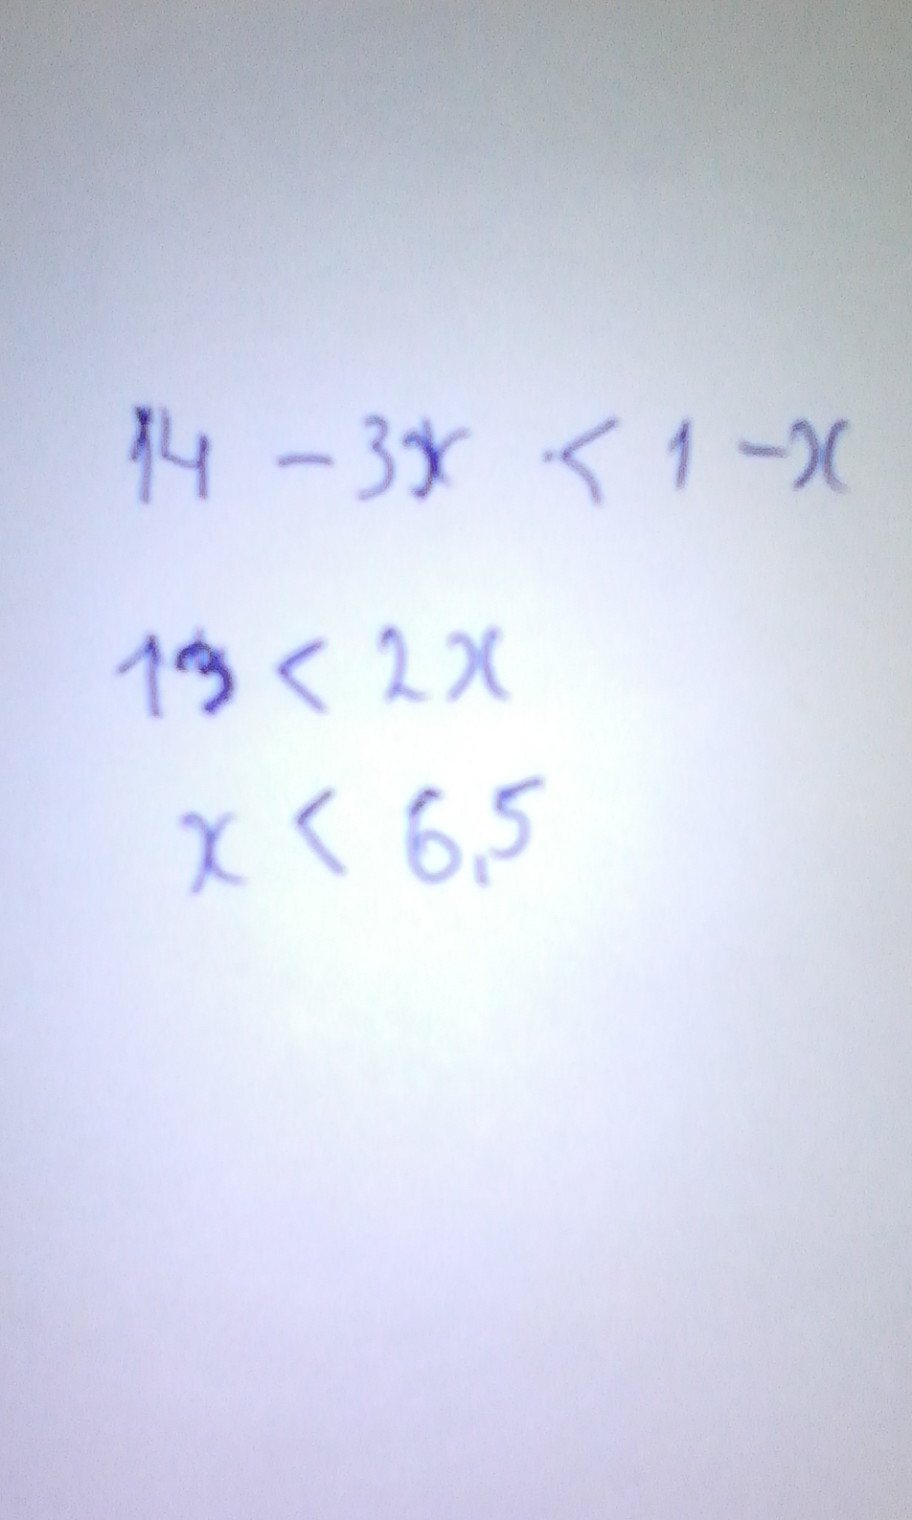 14 - 3x < 1 - x
13 < 2x
x < 6,5